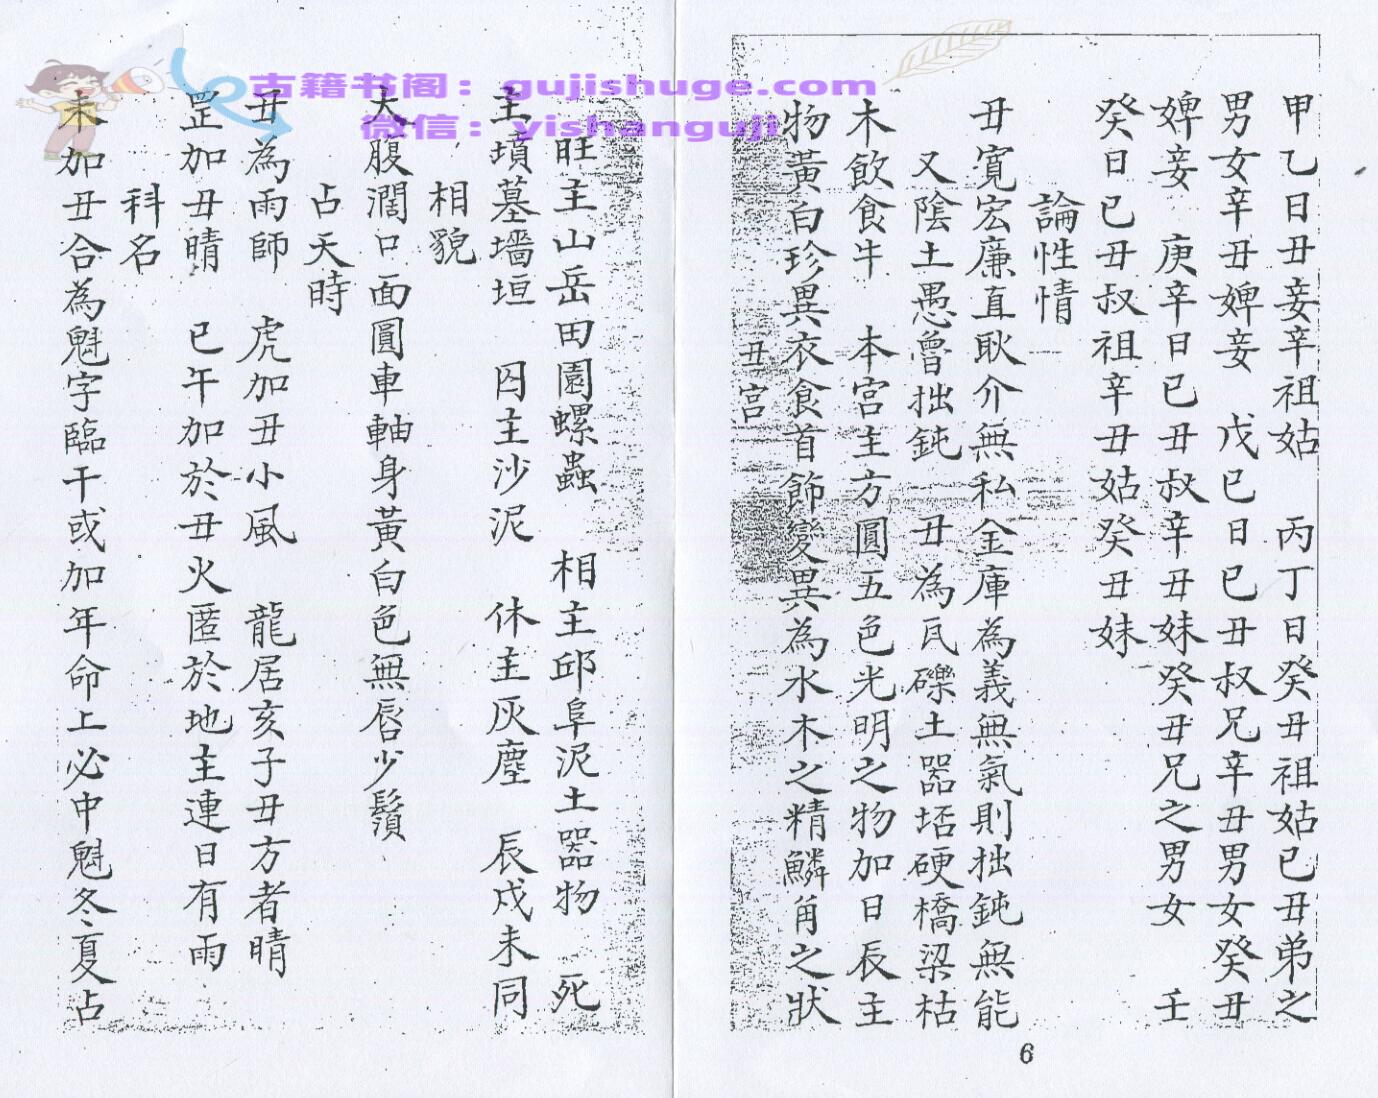 古籍书阁：gujishuge.com
微信：yishanguji
甲乙日丑妾辛祖姑　丙丁日癸丑祖姑己丑弟之
男女辛丑婢妾　戊己日己丑叔兄辛丑男女癸丑
婢妾　庚辛日己丑叔辛丑妹癸丑兄之男女　壬
癸日己丑叔祖辛丑姑癸丑妹
論性情
丑寬宏廉直耿介無私金庫為義無氣則拙鈍無能
又陰土愚魯拙鈍　丑為瓦礫土器坯硬橋梁枯
木飲食牛　本宮主方圓五色光明之物加日辰主
物黃白珍異衣食首飾變異為水木之精鱗角之狀
丑宮
6
旺主山岳田園螺蟲　相主邱阜泥土器物　死
主墳墓墻垣　囚主沙泥　休主灰塵　辰戌未同
相貌
大腹濶口面圓車軸身黃白色無唇少鬚
占天時
丑為雨師　虎加丑小風　龍居亥子丑方者晴
罡加丑晴　巳午加於丑火匿於地主連日有雨
科名
未加丑合為魁字臨干或加年命上必中魁冬夏占